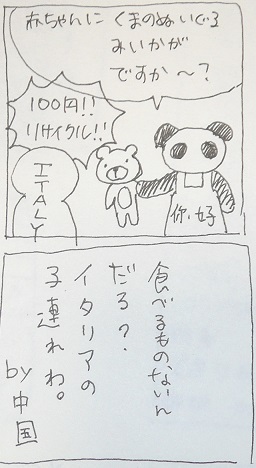 赤ちゃんに くまのぬいぐる
みいかが
ですか〜?
100円!!
リサイクル!!
ITALY
你好
食べるものないん
だろ?
イタリアの
子連れわ。
by中国